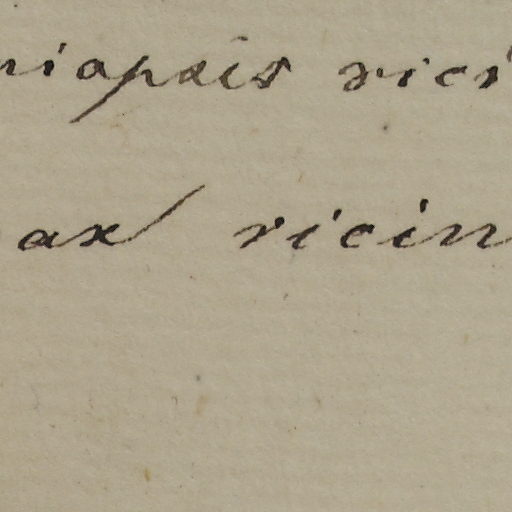 niapsis rici
ax ricin